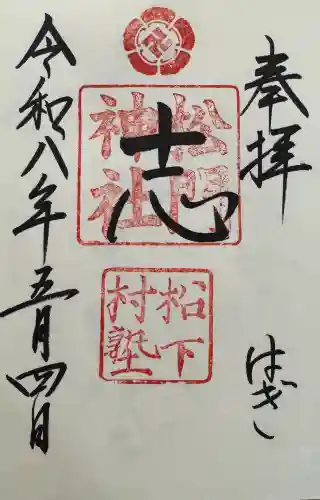 奉拝
はぎし
志
松陰神社
松下村塾
令和八年五月四日